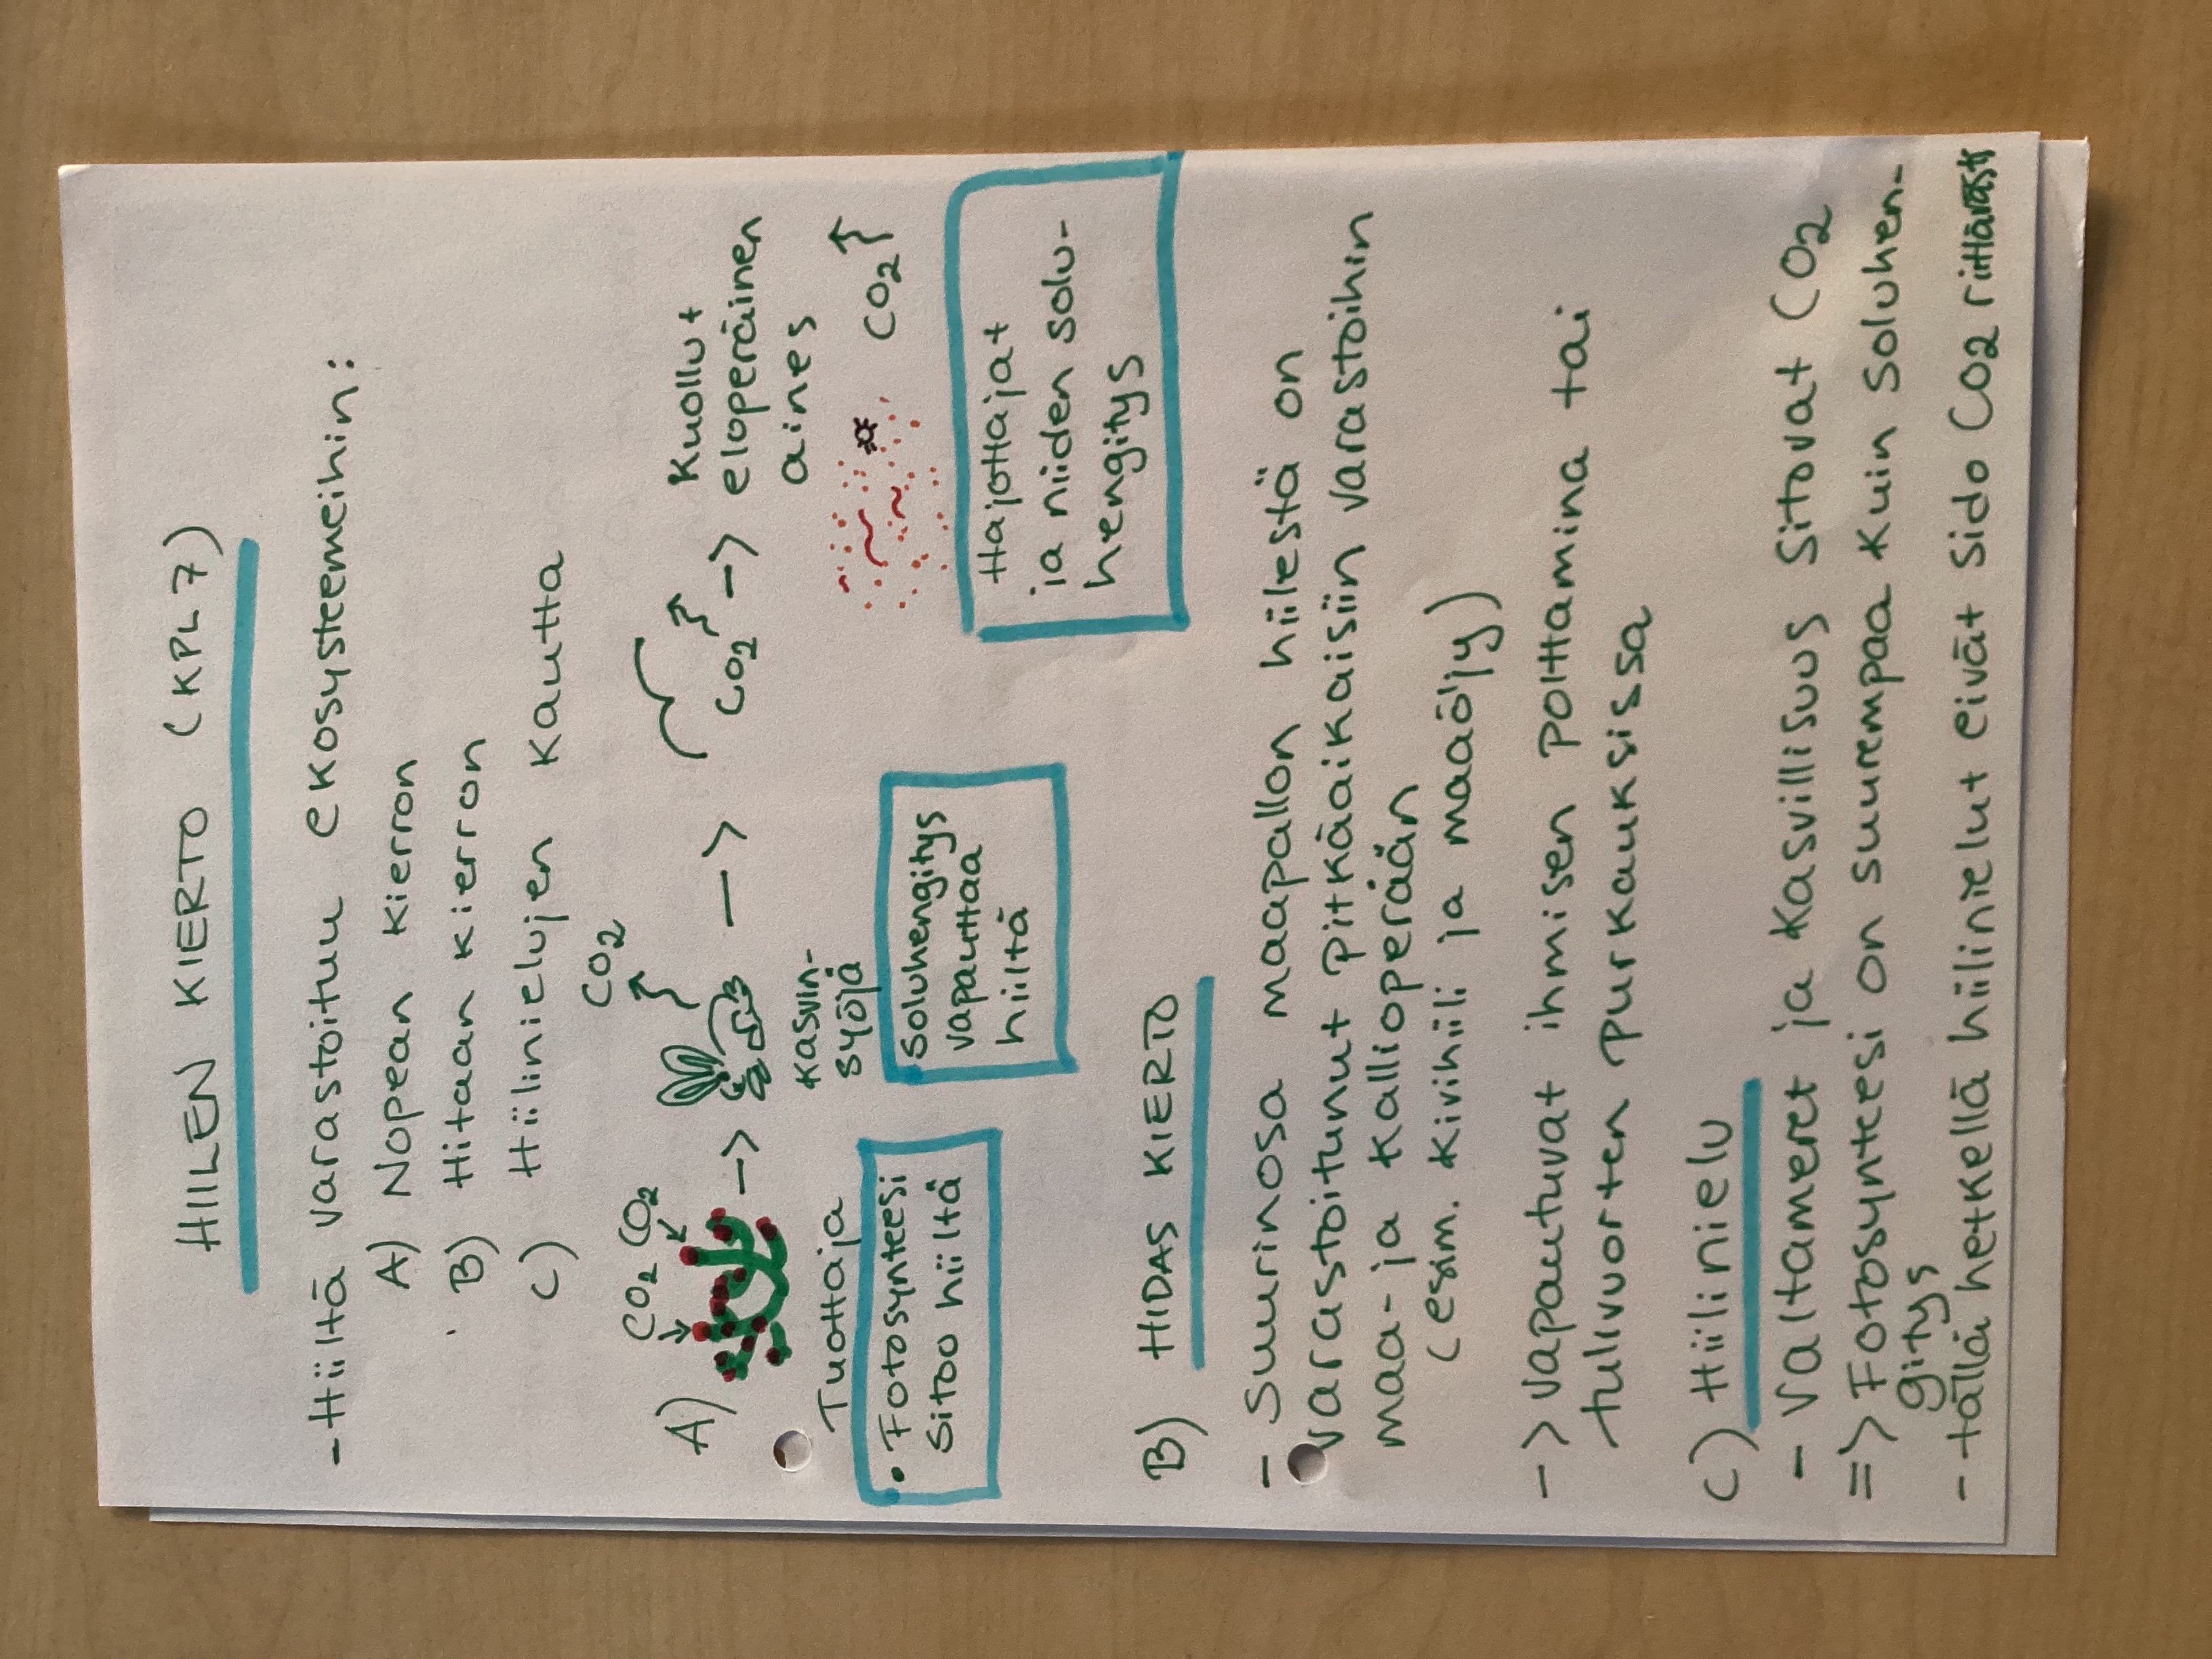 HIILEN KIERTO (KPL 7)
- Hiiltä varastoituu ekosysteemeihin:
A) Nopean kierron
B) Hitaan kierron
C) Hiilinielujen kautta
A)
CO2 CO2
CO2
CO2
Kuollut
eloperäinen
aines
CO2
Tuottaja
Kasvin-
syöjä
• Fotosynteesi
sitoo hiiltä
Soluhengitys
vapauttaa
hiiltä
Hajottajat
ja niiden solu-
hengitys
B) HIDAS KIERTO
- Suurinosa maapallon hiilestä on
varastoitunut pitkäaikaisiin varastoihin
maa- ja kallioperään
(esim. kivihiili ja maaöljy)
-> vapautuvat ihmisen polttamina tai
tulivuorten purkauksissa
C) Hiilinielu
- Valtameret ja kasvillisuus sitovat CO2
=> Fotosynteesi on suurempaa kuin soluhen-
gitys
- tällä hetkellä hiilinielut eivät sido CO2 riittävästi